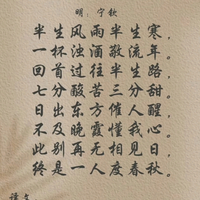 明：宁钦
半生风雨半生寒，
一杯浊酒敬流年。
回首过往半生路，
七分酸苦三分甜。
日出东方催人醒，
不及晚霞懂我心。
此别再无相见日，
终是一人度春秋。